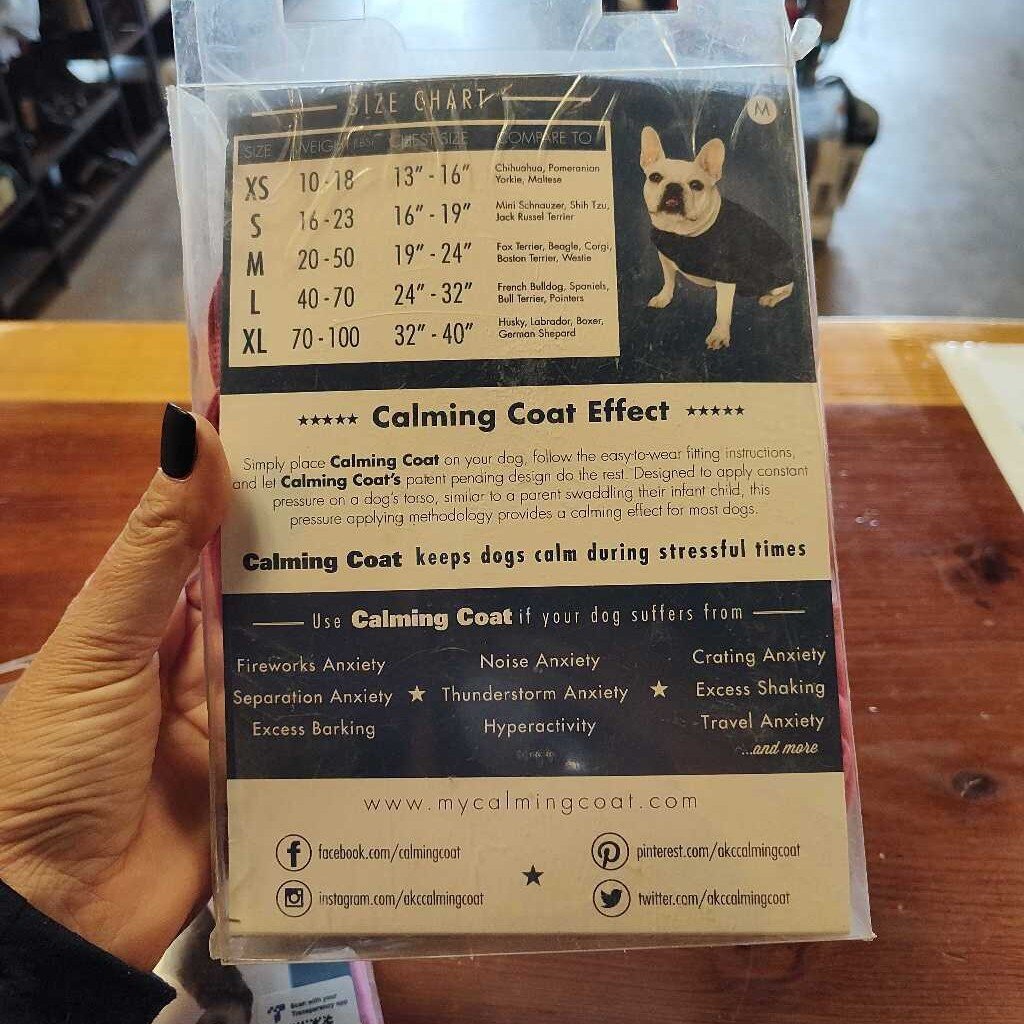 SIZE CHART
M
SIZE WEIGHT (LBS) CHEST SIZE COMPARE TO
XS 10-18 13" - 16" Chihuahua, Pomeranian
Yorkie, Maltese
S 16-23 16" - 19" Mini Schnauzer, Shih Tzu,
Jack Russel Terrier
M 20-50 19" - 24" Fox Terrier, Beagle, Corgi,
Boston Terrier, Westie
L 40-70 24" - 32" French Bulldog, Spaniels,
Bull Terrier, Pointers
XL 70-100 32" - 40" Husky, Labrador, Boxer,
German Shepard
Calming Coat Effect
Simply place Calming Coat on your dog, follow the easy-to-wear fitting instructions,
and let Calming Coat's patent pending design do the rest. Designed to apply constant
pressure on a dog's torso, similar to a parent swaddling their infant child, this
pressure applying methodology provides a calming effect for most dogs.
Calming Coat keeps dogs calm during stressful times
Use Calming Coat if your dog suffers from
Fireworks Anxiety Noise Anxiety Crating Anxiety
Separation Anxiety Thunderstorm Anxiety Excess Shaking
Excess Barking Hyperactivity Travel Anxiety
...and more
www.mycalmingcoat.com
facebook.com/calmingcoat pinterest.com/akccalmingcoat
instagram.com/akccalmingcoat twitter.com/akccalmingcoat
Scan with your
Transparency app